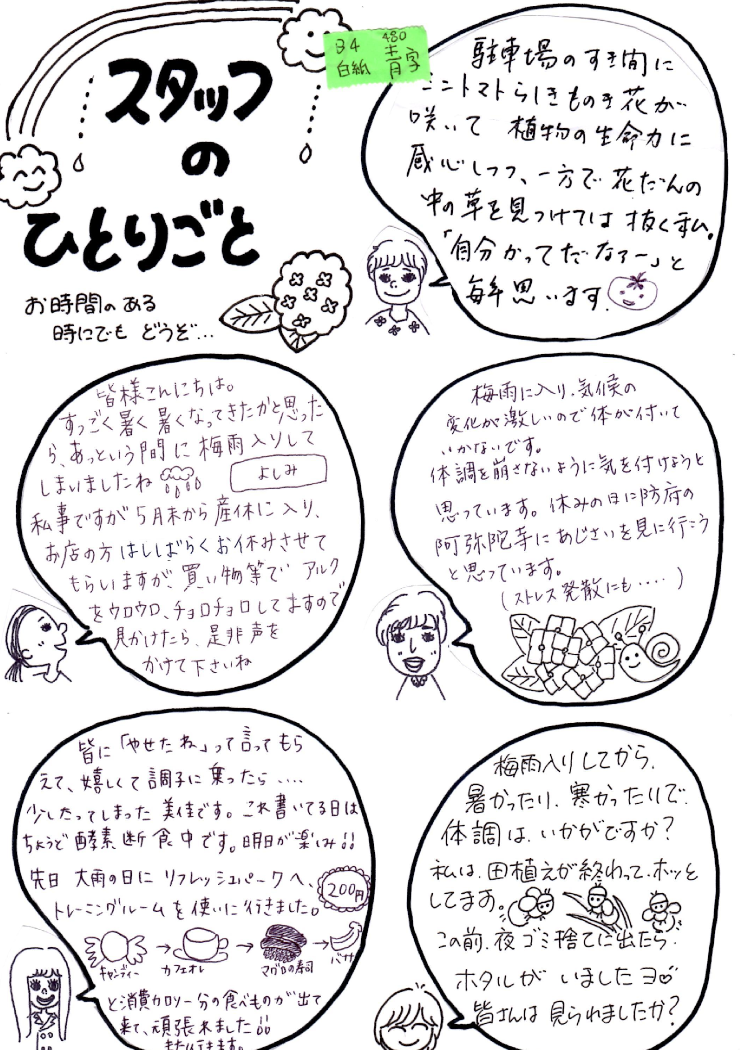 スタッフ
の
ひとりごと
お時間のある
時にでも どうぞ...
B4 480
白紙 青字
駐車場のすき間に
ミニトマトらしきものき花が
咲いて 植物の生命力に
感心しつつ、一方で花だんの
中の草を見つけては抜く私。
「自分かってだなァー」と
毎年思います。
皆様こんにちは。
すっごく暑く暑くなってきたかと思った
ら、あっという間に梅雨入りして
しまいましたね
よしみ
私事ですが5月末から産休に入り、
お店の方はしばらくお休みさせて
もらいますが、買い物等で アルク
をウロウロ、チョロチョロしてますので
見かけたら、是非声を
かけて下さいね
梅雨に入り、気候の
変化が激しいので体が付いて
いかないです。
体調を崩さないように気を付けようと
思っています。休みの日に防府の
阿弥陀寺にあじさいを見に行こう
と思っています。
(ストレス発散にも・・・・・)
皆に「やせたね」って言ってもら
えて、嬉しくて調子に乗ったら・・・・
少し太ってしまった 美佳です。これ書いてる日は
ちょうど酵素断食中です。明日が楽しみ!!
先日 大雨の日に リフレッシュパークへ、
200円
トレーニングルームを使いに行きました。
キャンディー → カフェオレ → マグロの寿司 → バナナ
と消費カロリー分の食べものが出て
来て、頑張れました!!
また行きます。
梅雨入りしてから、
暑かったり、寒かったりで、
体調は、いかがですか?
私は、田植えが終わって、ホッと
してます。
この前、夜ゴミ捨てに出たら、
ホタルが いましたヨ♡
皆さんは 見られましたか?